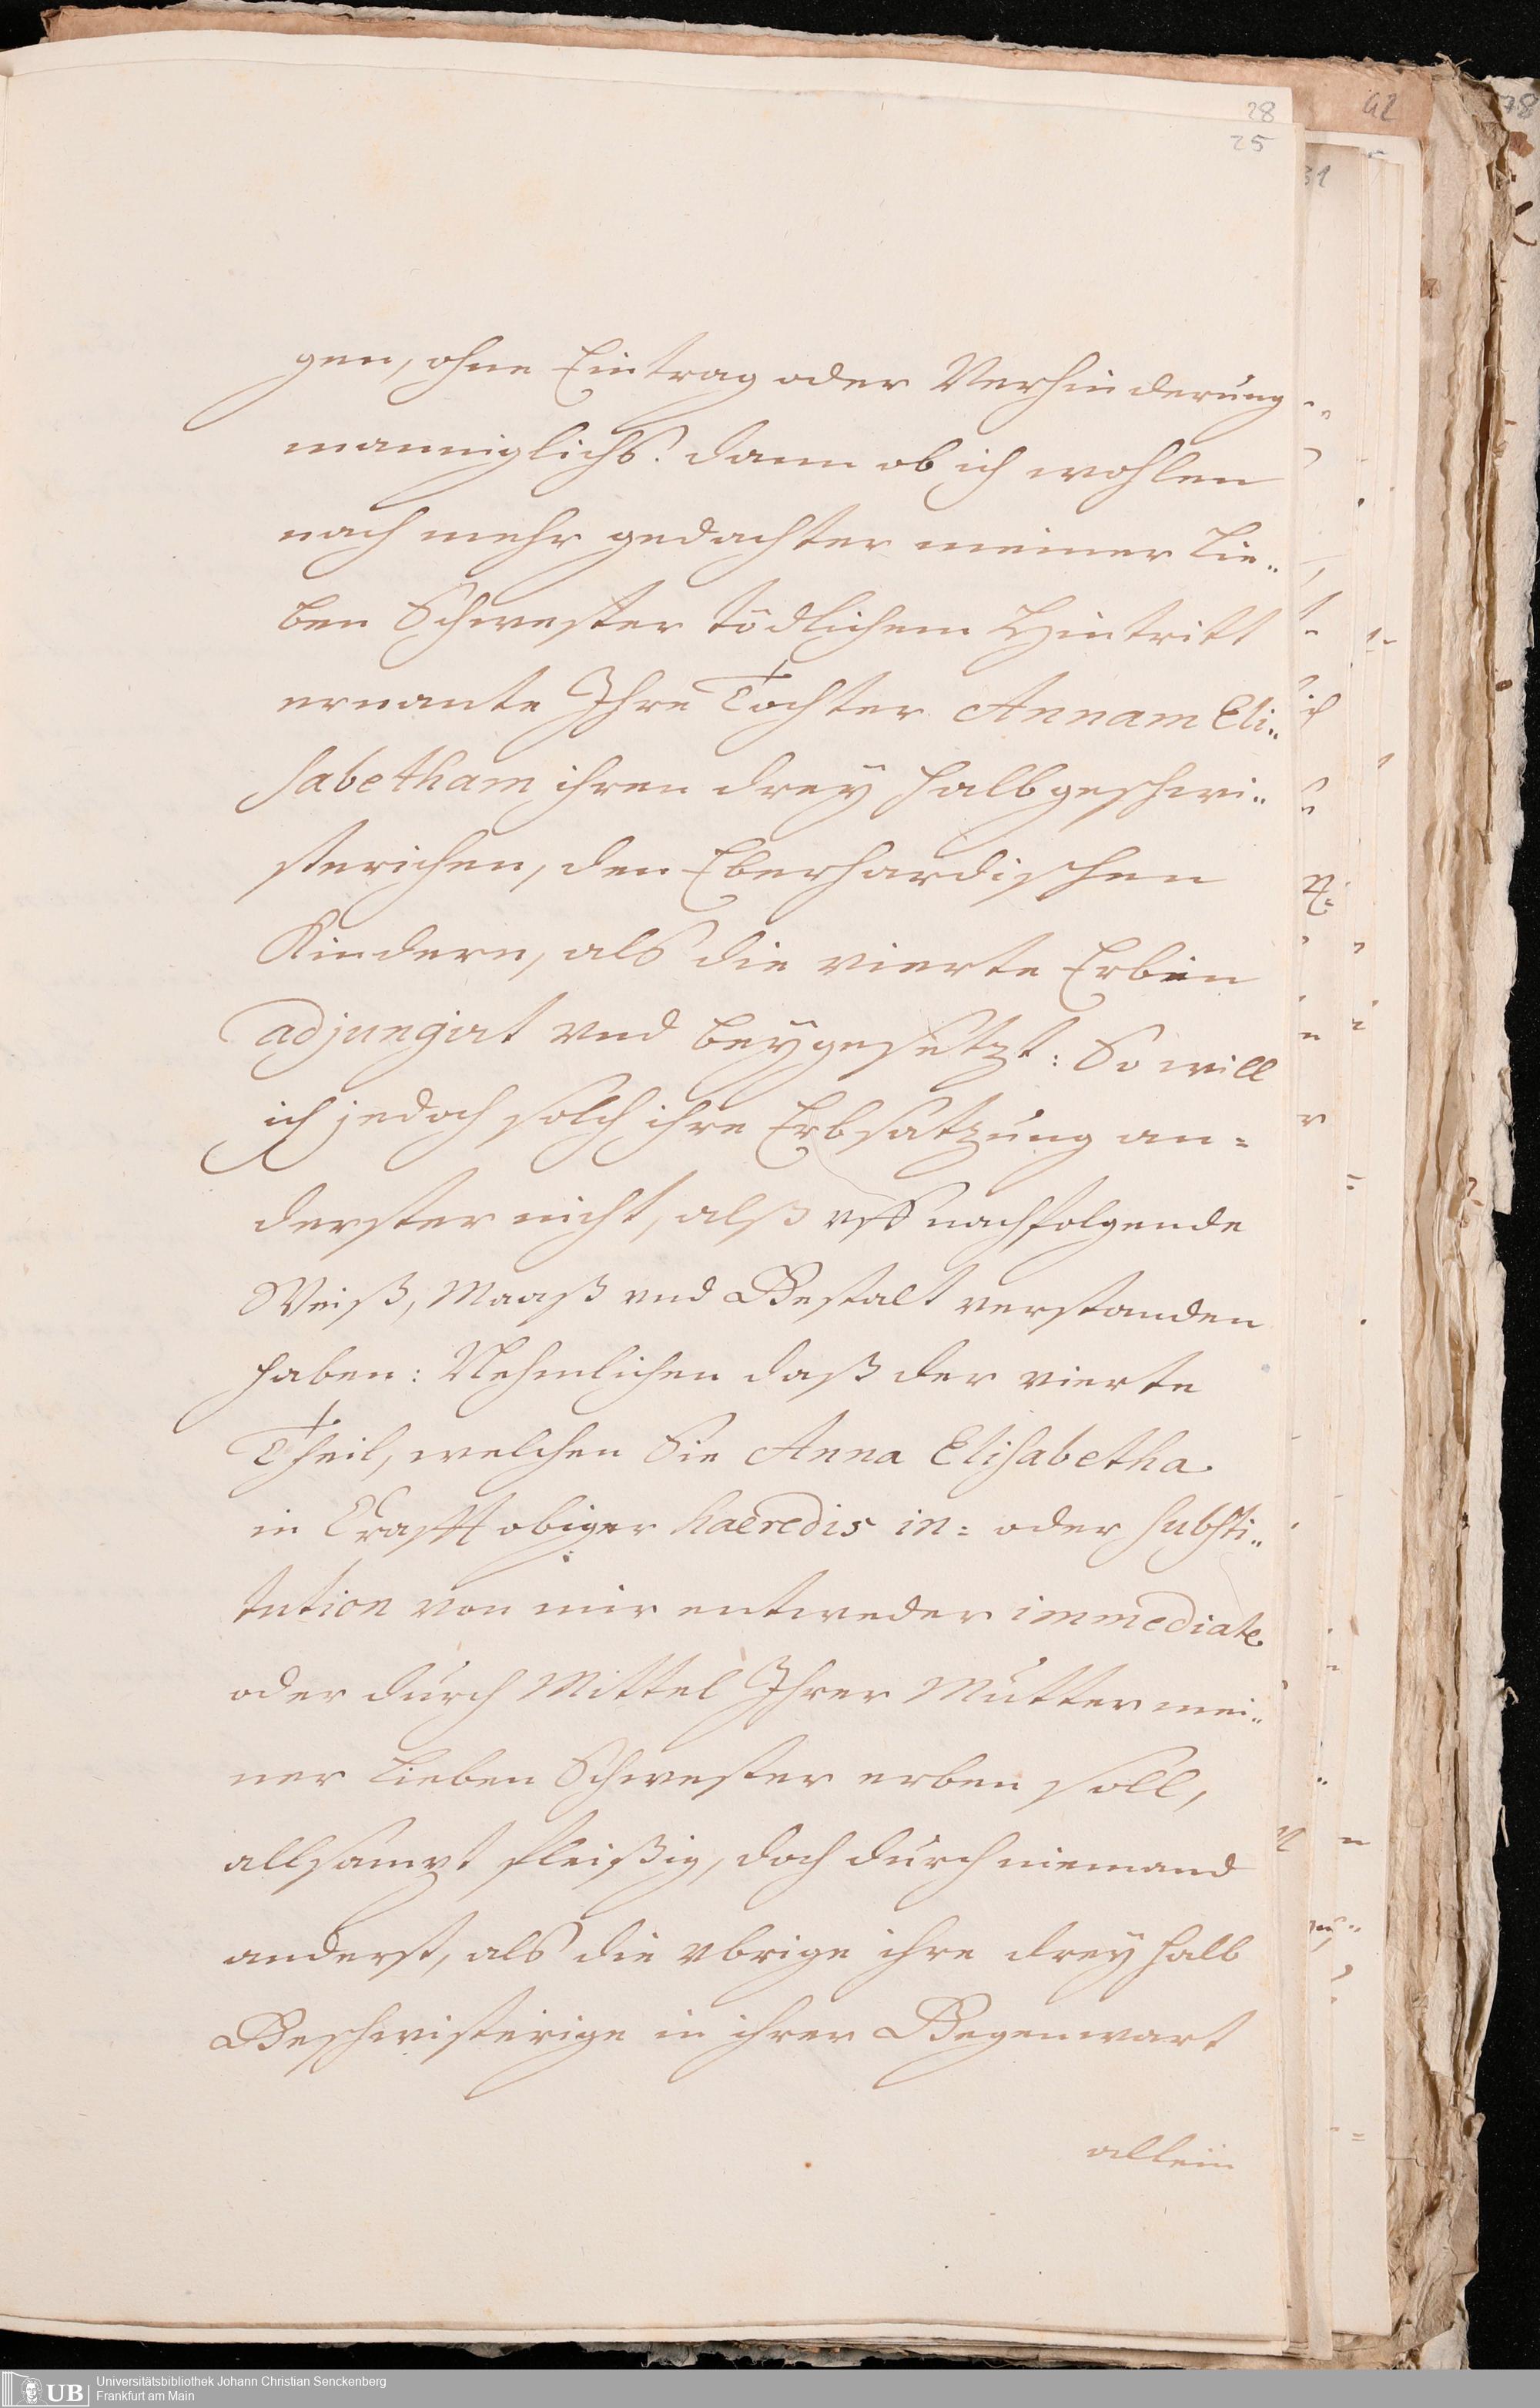 28
25
42
31
78
gen, ohne Eintrag oder Verhinderung
manniglichs. dann ob ich wohlen
nach mehr gedachter meiner Lie..
ben Schwester tödlichem Hintritt
ernante Ihre Tochter Annam Eli..
sabetham ihren drey halbgeschwi..
sterichen, den Eberhardischen
Kindern, als die vierte Erbin
adjungirt vnd beygesetzt: So will
ich jedoch solch ihre Erbsatzung an=
derster nicht, alß vff nachfolgende
Weiß, Maaß vnd Gestalt verstanden
haben: Nehmlichen daß der vierte
Theil, welchen Sie Anna Elisabetha
in Crafft obiger haeredis in= oder substi..
tution von mir entweder immediate
oder durch Mittel Ihrer Mutter mei..
ner lieben Schwester erben soll,
allsampt fleißig, doch durch niemand
anderst, als die vbrige ihre drey halb
Geschwisterige in ihrer Gegenwart
allein
UB
Universitätsbibliothek Johann Christian Senckenberg
Frankfurt am Main